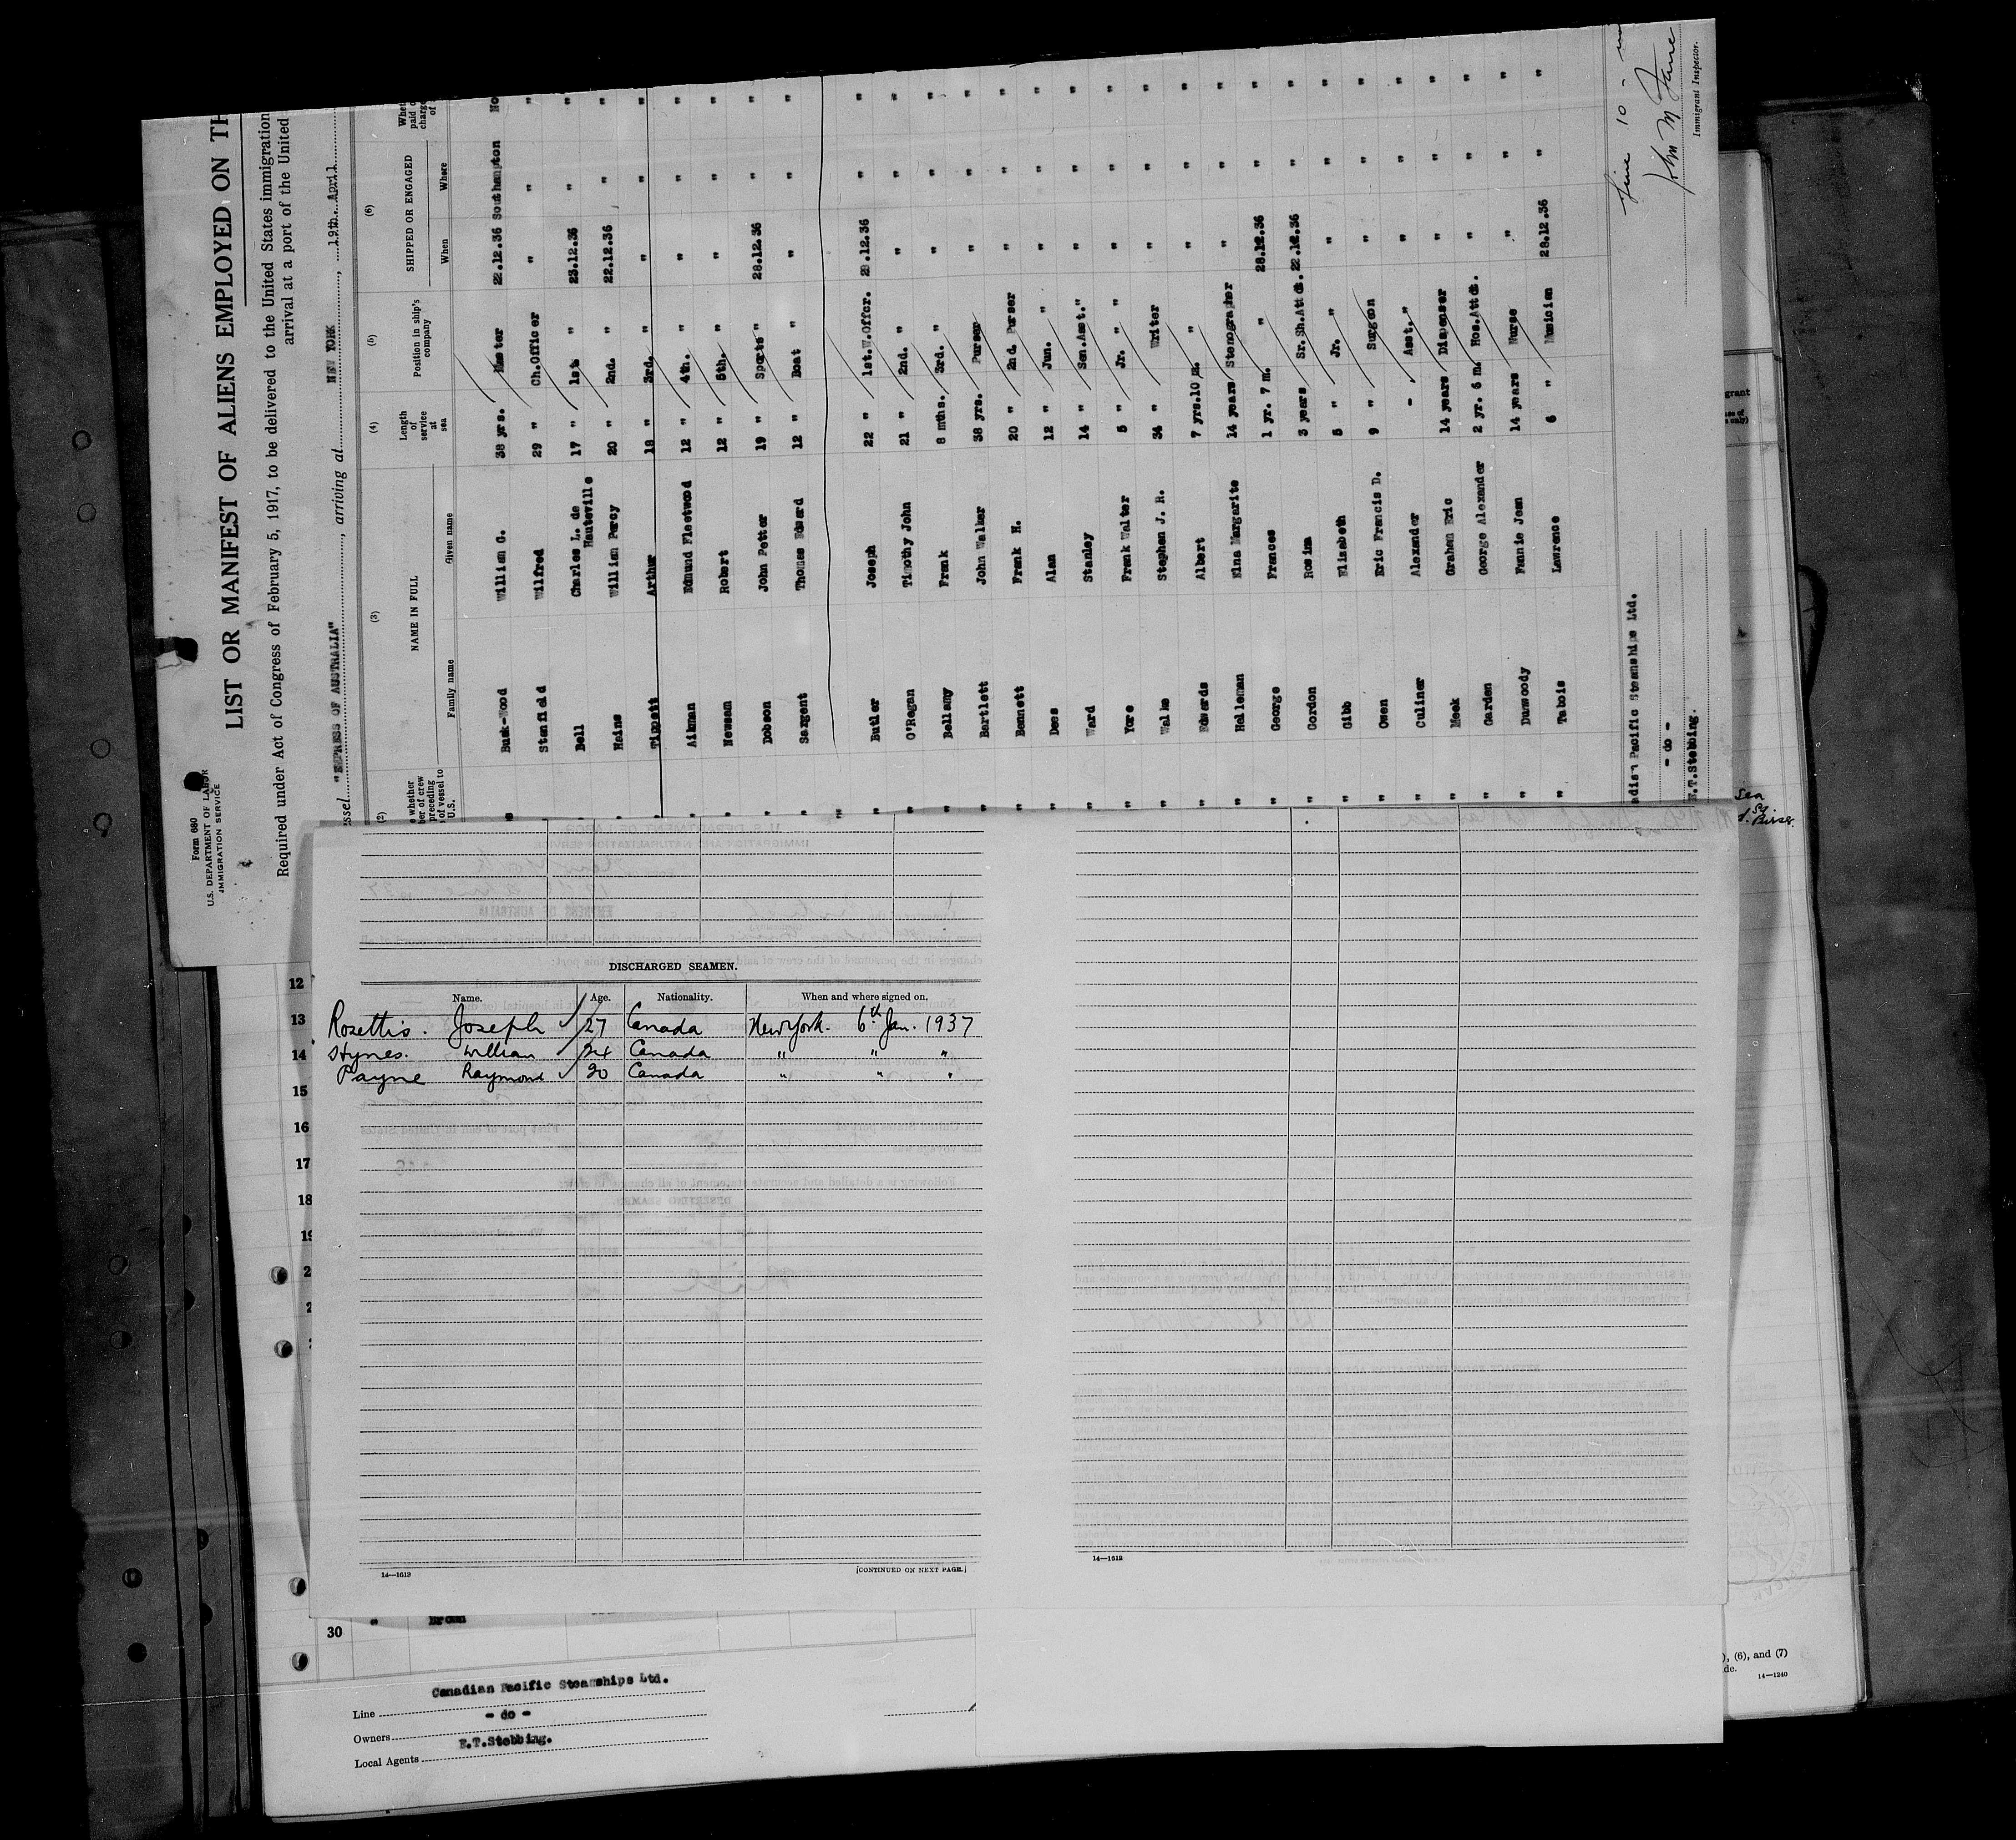 Form 680
U.S. DEPARTMENT OF LABOR
IMMIGRATION SERVICE
LIST OR MANIFEST OF ALIENS EMPLOYED ON TH
Required under Act of Congress of February 5, 1917, to be delivered to the United States immigration
arrival at a port of the United
essel "EMPRESS OF AUSTRALIA", arriving at NEW YORK, 19th. April
(2) (3) (4) (5) (6)
NAME IN FULL
SHIPPED OR ENGAGED
e whether
ber of crew
preceding
of vessel to
U.S.
Family name Given name
Length
of
service
at
sea
Position in ship's
company
When Where
Whet
paid o
charge
of
Busk-Wood William G. 38 yrs. Master 22.12.36 Southampton No
Stanfield Wilfred 29 " Ch.Officer " " "
Bell Charles L. de Hauteville 17 " 1st " 23.12.36 " "
Hains William Percy 20 " 2nd. " 22.12.36 " "
Tippett Arthur 18 " 3rd. " " " "
Aikman Edmund Fleetwood 12 " 4th. " " " "
Newsam Robert 12 " 5th. " " " "
Dobson John Petter 19 " Sports " 28.12.36 " "
Sargent Thomas Edward 12 " Boat " " " "
Butler Joseph 22 " 1st.W.Offcr. .12.36 " "
O'Regan Timothy John 21 " 2nd. " " " "
Bellamy Frank 8 mths. 3rd. " " " "
Bartlett John Walker 38 yrs. Purser " " "
Bennett Frank H. 20 " 2nd. Purser " " "
Dees Alan 12 " Jun. " " " "
Ward Stanley 14 " Sen.Asst." " " "
Yore Frank Walter 5 " Jr. " " " " "
Walke Stephen J. R. 34 " Writer " " "
Edwards Albert 7 yrs.10 m. " " " "
Helleman Elna Margarite 14 years Stenographer " " "
George Frances 1 yr. 7 m. " 28.12.36 " "
Gordon Rosina 3 years Sr.Sh.Attdt. 22.12.36 " "
Gibb Elizabeth 5 " Jr. " " " "
Owen Eric Francis D. 9 " Surgeon " " "
Culiner Alexander - Asst. " " " "
Meek Graham Eric 14 years Dispenser " " "
Garden George Alexander 2 yr. 6 m. Hos.Attdt. " " "
Dunwoody Fannie Jean 14 years Nurse " " "
Tabois Lawrence 6 " Musician 28.12.36 " "
adian Pacific Steamships Ltd.
- do -
E.T.Stebbing.
10 -
John M
Immigrant Inspector.
DISCHARGED SEAMEN.
Name. Age. Nationality. When and where signed on.
Rosettis. Joseph 27 Canada New York. 6th Jan. 1937
Hynes. William 24 Canada " " "
Payne Raymond 20 Canada " " "
14—1612
[CONTINUED ON NEXT PAGE.]
14—1612
12
13
14
15
16
17
18
19
2
2
30 " Brown
Line Canadian Pacific Steamships Ltd.
Owners - do -
Local Agents E.T.Stebbing.
grant
Sea
), (6), and (7)
de.
14—1240